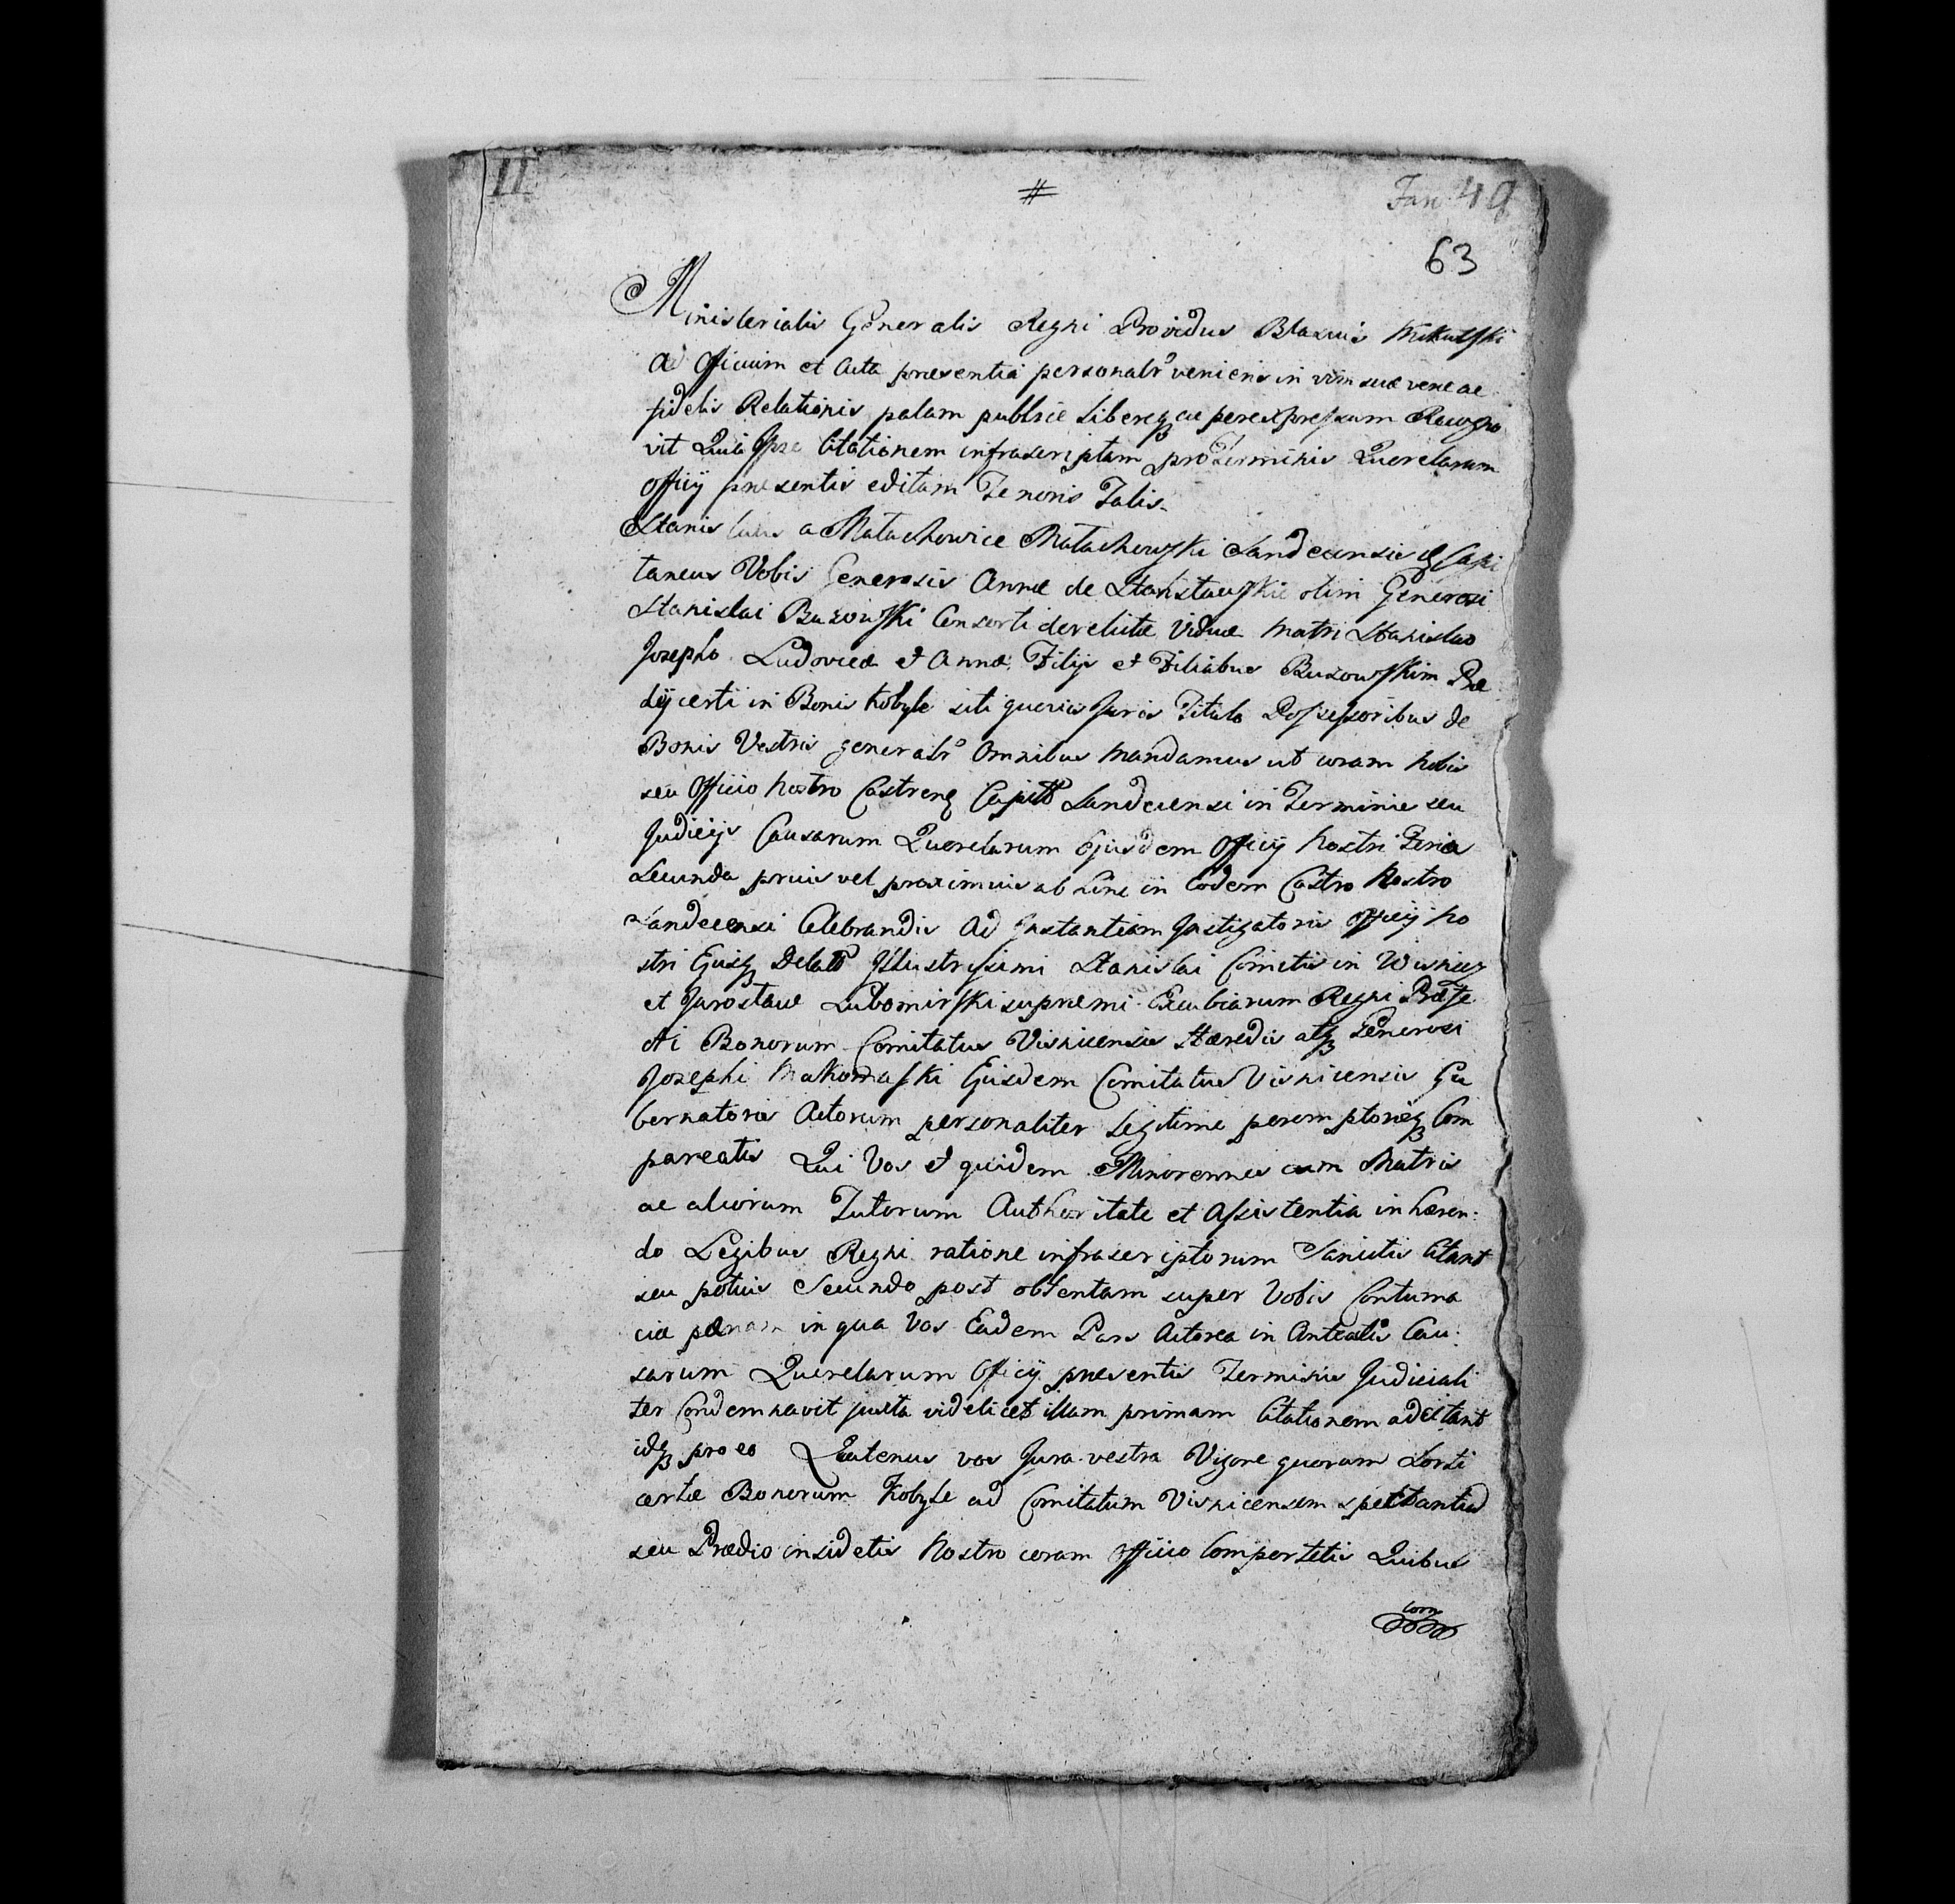 II
#
Fan 49
63
Ministerialis Generalis Regni Providus Blasius Mikulski
ad Officium et Acta præsentia personalr veniens in vim suæ veræ ac
fidelis Relationis palam publice Libereq ac per expressum Recogno
vit Quia Ipse Citationem infrascriptam pro Terminis Querelarum
Officij præsentis editam Tenoris Talis.
Stanislaus a Małachowice Małachowski Sandecensis Capi
taneus Vobis Generosis Annæ de olim Generosi
Stanislai Buzowski Consorti derelictæ Viduæ Matri Stanislao
Josepho Ludovicæ et Annæ Filijs et Filiabus Buzowskim Præ
dij certi in Bonis Kobyle siti quovis Juris Titulo Possessoribus de
Bonis Vestris generalr Omnibus Mandamus ut coram Nobis
seu Officio Nostro Castren Capitl Sandecensi in Terminis seu
Judicijs Causarum Querelarum Ejusdem Officij Nostri Feria
Secunda prius vel proximius ab hinc in Eodem Castro Nostro
Sandecensi Celebrandis Ad Instantiam Instigatoris Officij No
stri Ejusq Delatt Illustrissimi Stanislai Comitis in Wisnicz
et Jarosław Lubomirski supremi Excubiarum Regni Præfe
cti Bonorum Comitatus Visnicensis Hæredis atq Generosi
Josephi Makomaski Ejusdem Comitatus Visnicensis Gu
bernatoris Actorum personaliter Legitime peremptorieq Com
pareatis Qui Vos et quidem Minorennes cum Matris
ac aliorum Tutorum Authoritate et Assistentia inhæren:
do Legibus Regni ratione infrascriptorum Sancitis Citant
seu potius Secundo post obtentam super Vobis Contuma
ciæ pænam in qua Vos Eadem Pars Actorea in Anteactis Cau:
sarum Querelarum Officij præsentis Terminis Judiciali
ter Condemnavit juxta videlicet illam primam Citationem adcitant
idq pro eo Quatenus vos Jura vestra Vigore quorum Sorti
certæ Bonorum Kobyle ad Comitatum Visnicensem spectantium
seu Prædio insidetis Nostro coram Officio Comportetis Quibus
com